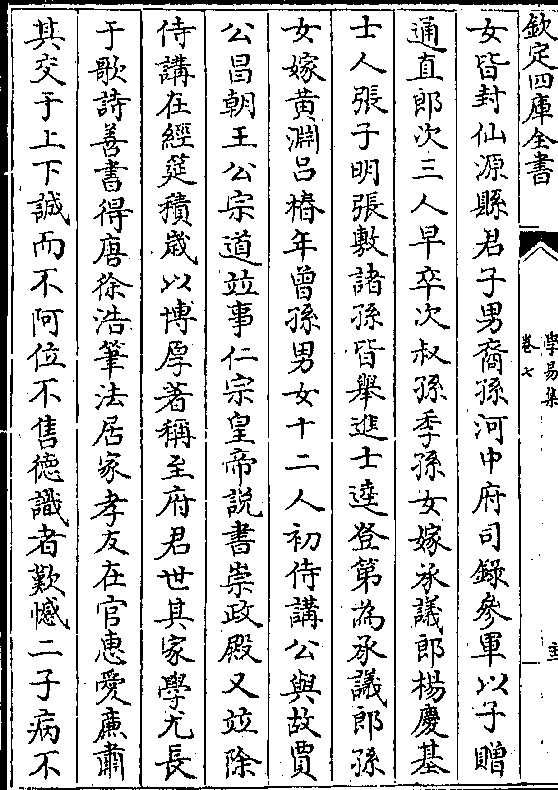 欽定四庫全書
學易集
卷七
女皆封仙源縣君子男裔孫河中府司錄參軍以子贈
通直郎次三人早卒次叔孫季孫女嫁承議郎楊慶基
士人張子明張敷諸孫皆舉進士逵登第為承議郎孫
女嫁黃淵吕椿年曾孫男女十二人初侍講公與故賈
公昌朝王公宗道竝事仁宗皇帝說書崇政殿又竝除
侍講在經筵積歲以博厚著稱至府君世其家學尤長
于歌詩善書得唐徐浩筆法居家孝友在官惠愛廉肅
其交于上下誠而不阿位不售德識者歎憾二子病不